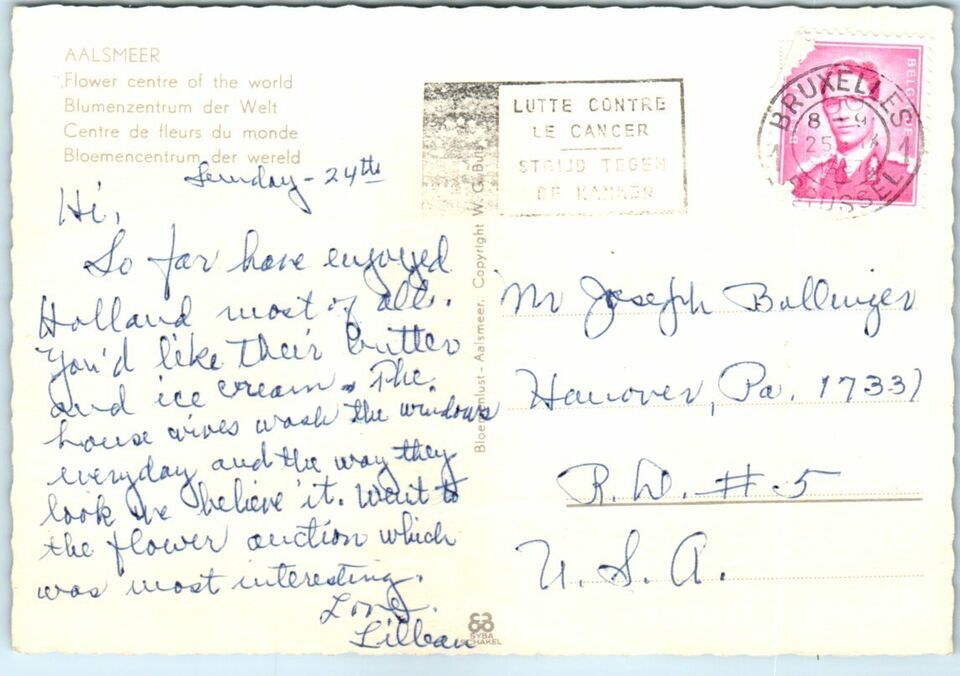 AALSMEER
Flower centre of the world
Blumenzentrum der Welt
Centre de fleurs du monde
Bloemencentrum der wereld
Sunday - 24th
Hi,
So far have enjoyed
Holland most of all.
You'd like their butter
and ice cream. The
house wives wash the windows
everyday and the way they
look we believe it. Went to
the flower auction which
was most interesting.
Love,
Lillian
Bloemenlust - Aalsmeer. Copyright W. G. But
SYBA
SCHAKEL
LUTTE CONTRE
LE CANCER
STRIJD TEGEN
DE KANKER
BRUXELLES
8 - 9
25
BRUSSEL
1
Mr Joseph Bollinger
Hanover, Pa. 17331
R.D. #5
U. S. A.